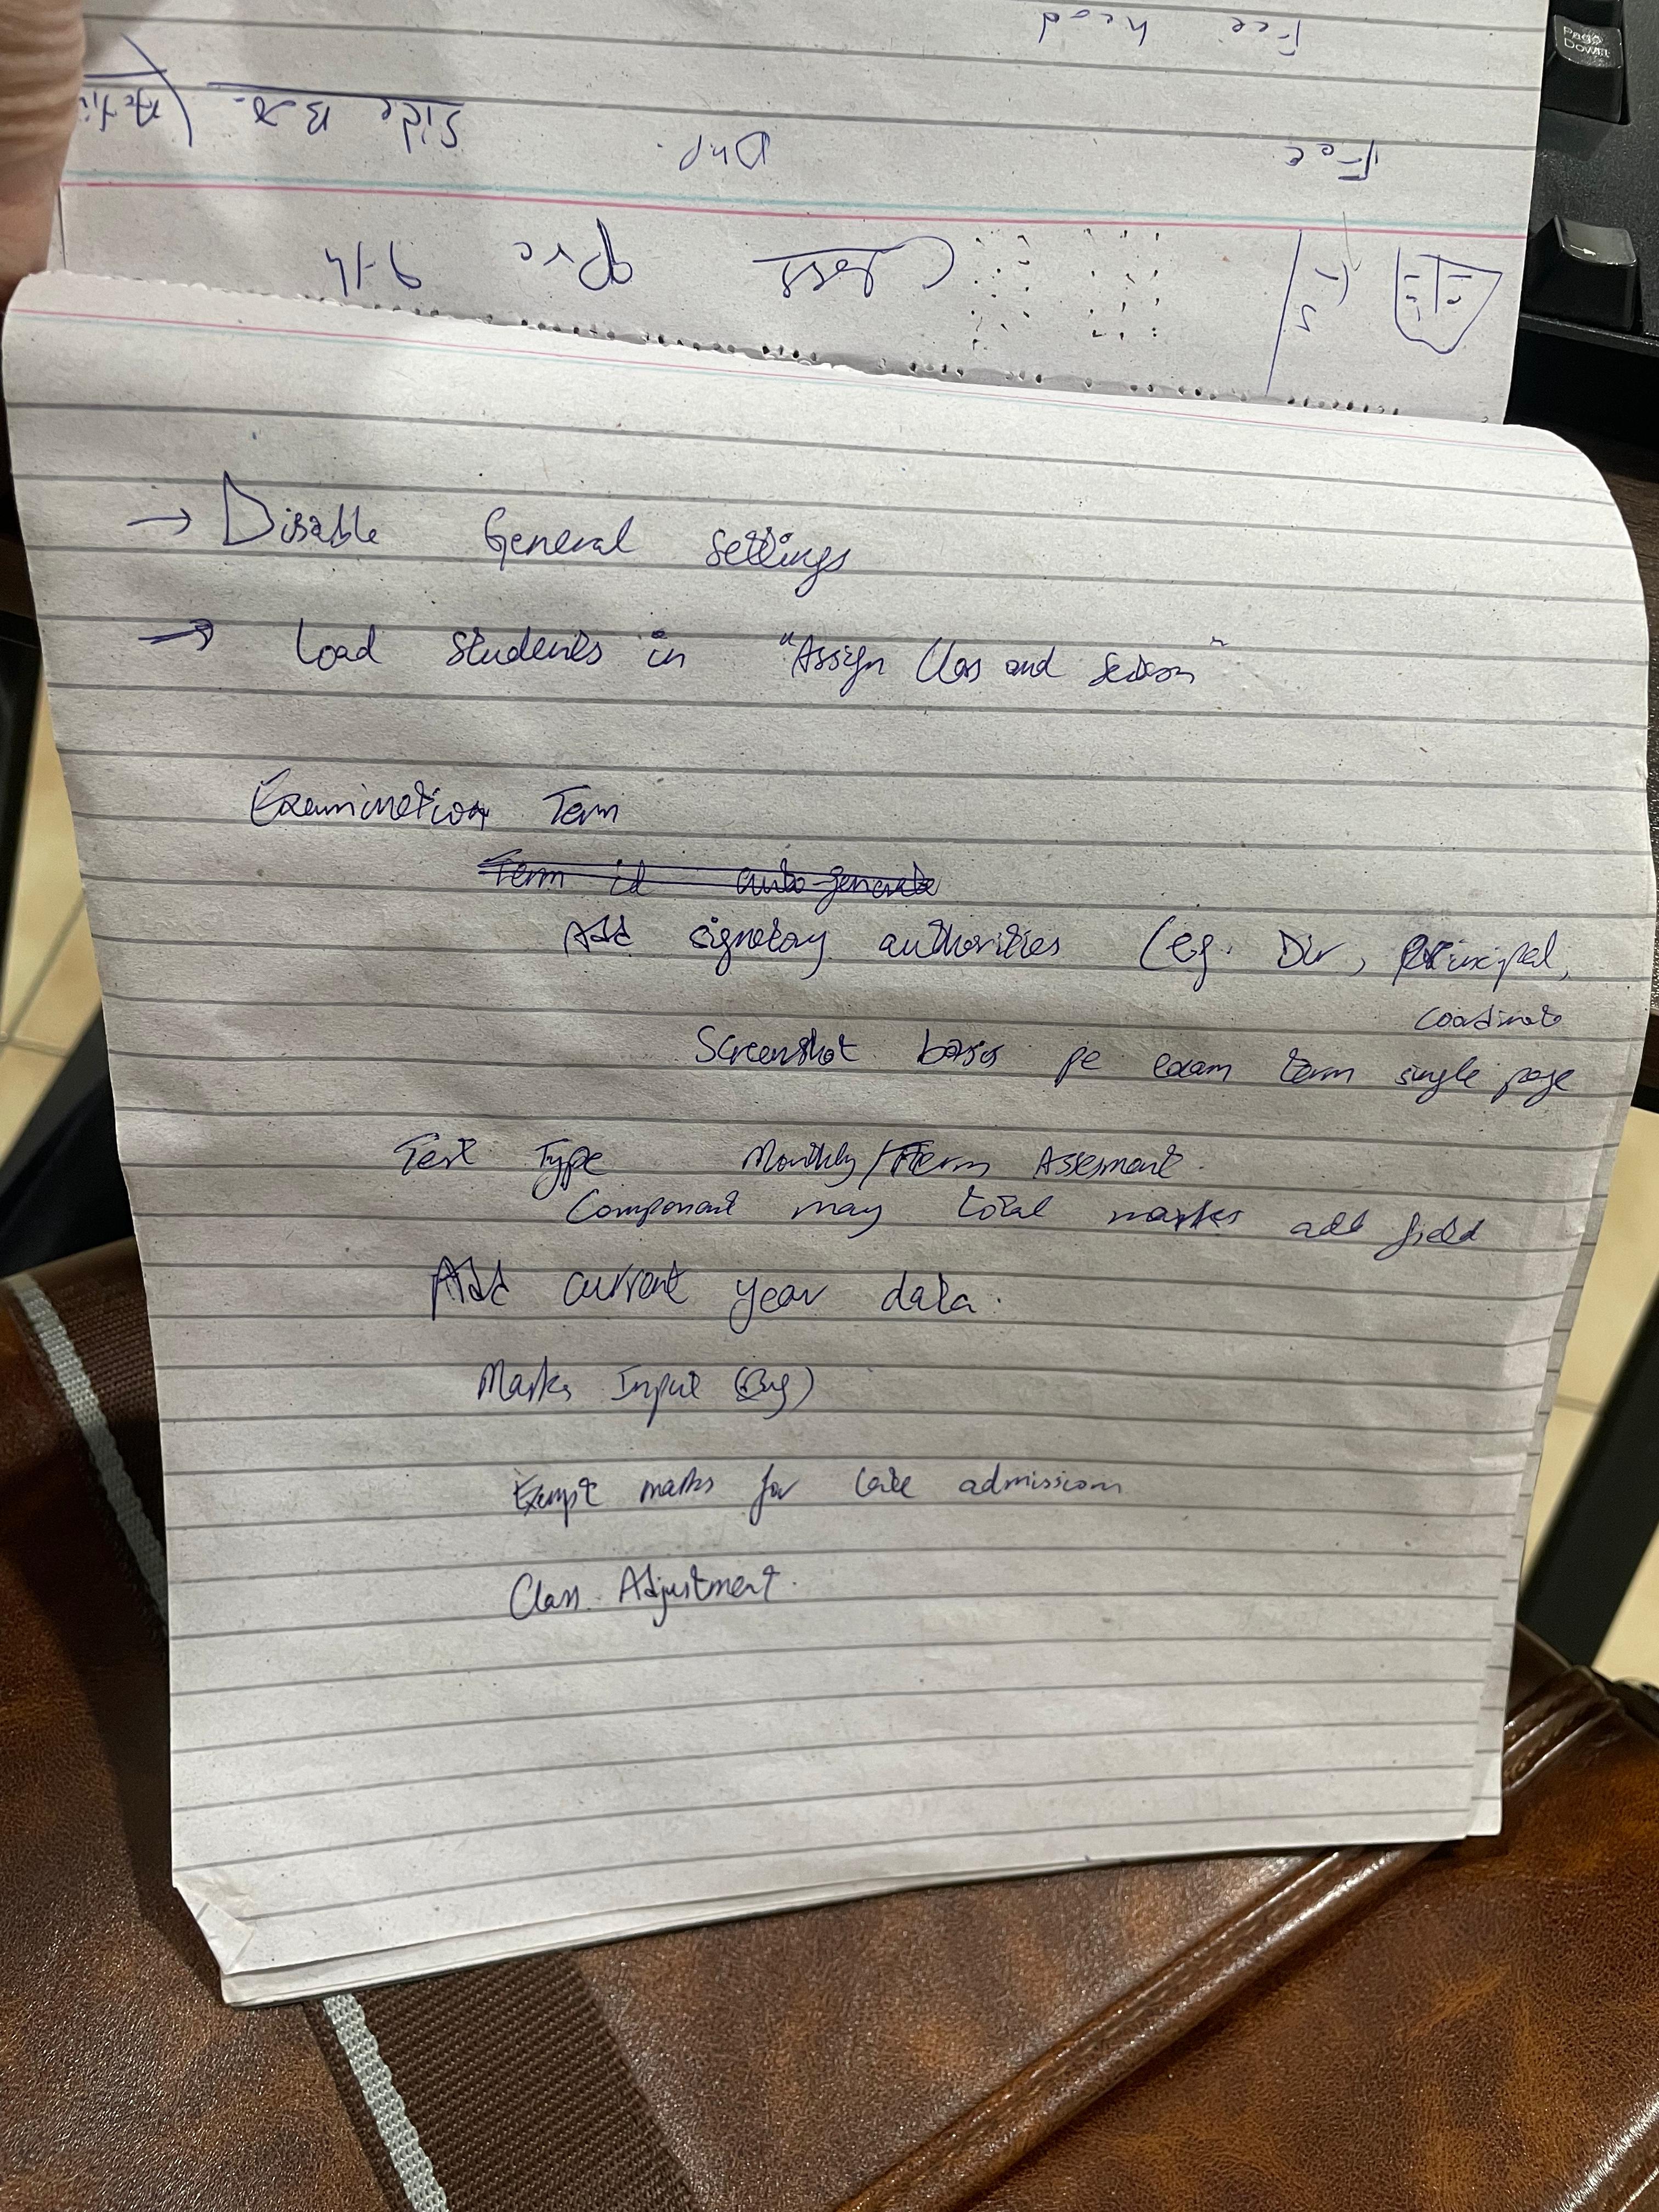 Page
Down
Fee head
Fee Dup. Side B
Class Pre 9th
→ Disable General settings
→ Load students in "Assign Class and Section"
Examination Term
Term id auto-generate
Add signatory authorities (eg. Dir, principal,
coordinato
Screenshot basis pe exam term single page
Test Type Monthly/Term Assesment.
Component may total marks add field
Add current year data.
Marks Input (Bug)
Exempt marks for late admission
Class Adjustment.